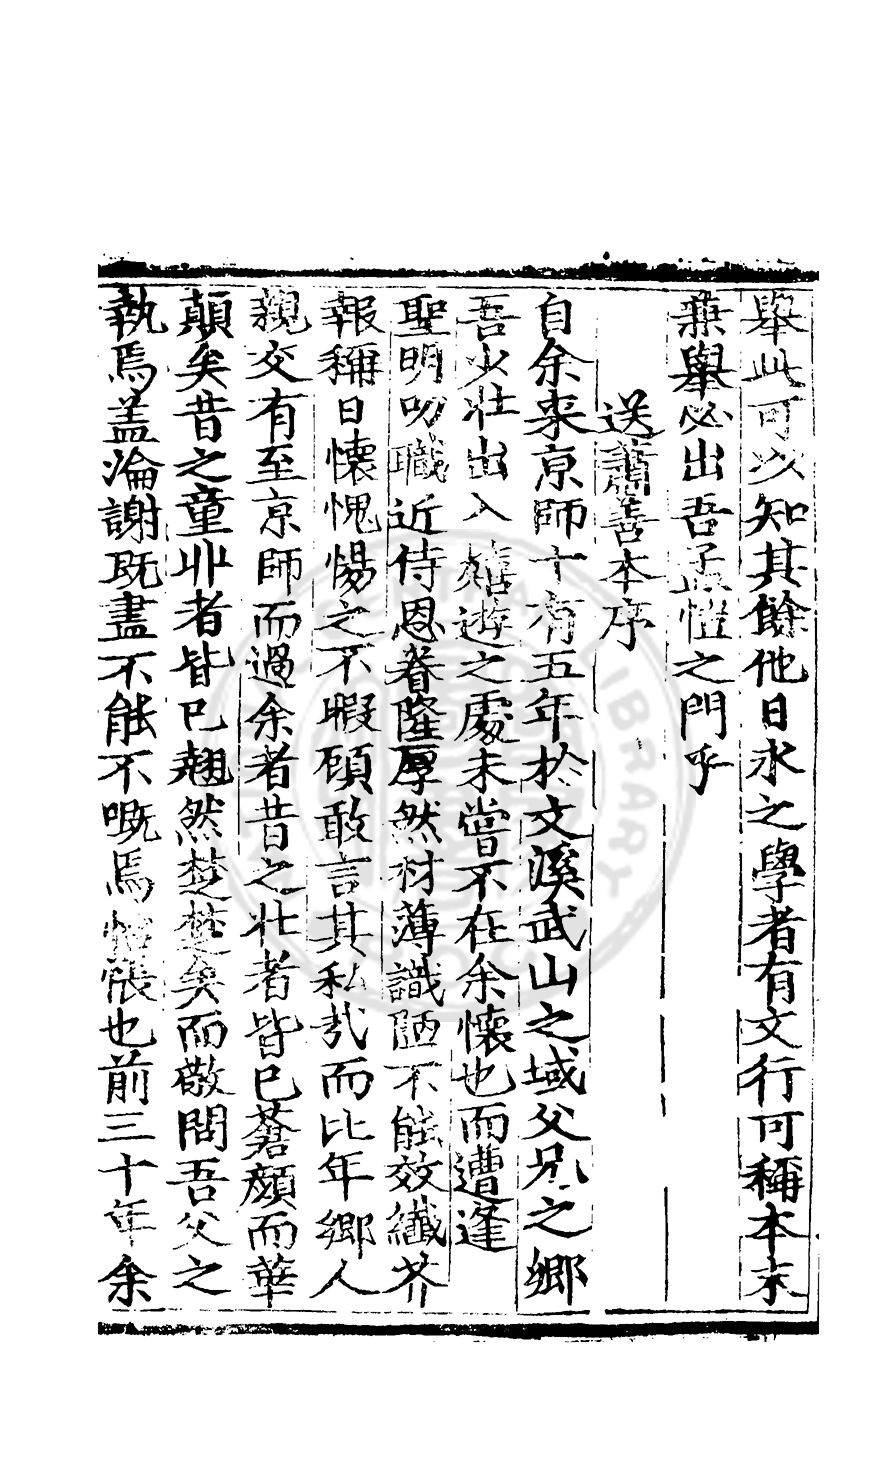 舉此可以知其餘他日永之學者有文行可稱本末
兼舉必出吾孟愷之門乎
送蕭善本序
自余来京師十有五年於文溪武山之域父兄之鄉
吾少壯出入嬉遊之處未嘗不在余懷也而遭逢
聖明叨職近侍恩眷隆厚然材薄識陋不能效纖芥
報稱日懷愧惕之不暇顧敢言其私哉而比年鄉人
親交有至京師而過余者昔之壯者皆已蒼顏而華
顛矣昔之童丱者皆已翹然楚楚矣而敬問吾父之
執焉盖淪謝既盡不能不嘅焉悵也前三十年余
LIBRARY